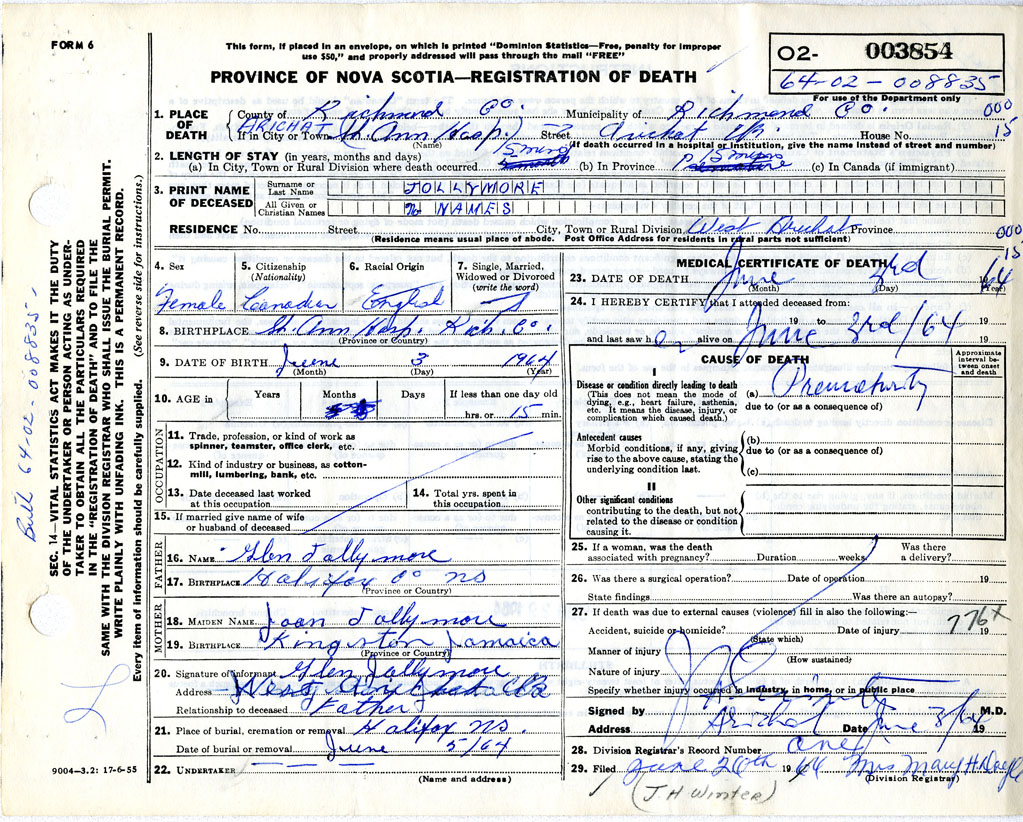 FORM 6
This form, if placed in an envelope, on which is printed "Dominion Statistics—Free, penalty for improper
use $50," and properly addressed will pass through the mail "FREE"
PROVINCE OF NOVA SCOTIA—REGISTRATION OF DEATH
02- 003854
64-02-008835
For use of the Department only
1. PLACE OF DEATH
County of Richmond Co. Municipality of Richmond Co 000
ARICHAT
If in City or Town St. Ann Hosp. Street Arichat House No. 15
(Name) (If death occurred in a hospital or institution, give the name instead of street and number)
2. LENGTH OF STAY (in years, months and days)
(a) In City, Town or Rural Division where death occurred 15 mins (b) In Province 15 mins (c) In Canada (if immigrant)
3. PRINT NAME OF DECEASED
Surname or Last Name JOLLYMORE
All Given or Christian Names No NAMES
RESIDENCE No. Street City, Town or Rural Division West Arichat Province 000
15
(Residence means usual place of abode. Post Office Address for residents in rural parts not sufficient)
4. Sex Female
5. Citizenship (Nationality) Canadian
6. Racial Origin English
7. Single, Married, Widowed or Divorced (write the word) S
8. BIRTHPLACE St. Ann Hosp. Rich. Co.
(Province or Country)
9. DATE OF BIRTH June 3 1964
(Month) (Day) (Year)
10. AGE in Years Months Days If less than one day old
hrs. or 15 min.
OCCUPATION
11. Trade, profession, or kind of work as spinner, teamster, office clerk, etc.
12. Kind of industry or business, as cotton-mill, lumbering, bank, etc.
13. Date deceased last worked at this occupation
14. Total yrs. spent in this occupation
15. If married give name of wife or husband of deceased
FATHER
16. NAME Glen Jollymore
17. BIRTHPLACE Halifax Co NS
(Province or Country)
MOTHER
18. MAIDEN NAME Joan Jollymore
19. BIRTHPLACE Kingston Jamaica
(Province or Country)
20. Signature of informant Glen Jollymore
Address West Arichat
Relationship to deceased Father
21. Place of burial, cremation or removal Halifax NS.
Date of burial or removal June 5/64
22. UNDERTAKER
(Name and address)
MEDICAL CERTIFICATE OF DEATH
23. DATE OF DEATH June 3rd 1964
(Month) (Day) (Year)
24. I HEREBY CERTIFY that I attended deceased from:
19 to 19
and last saw h er alive on June 3rd/64 19
CAUSE OF DEATH
Approximate interval between onset and death
I
Disease or condition directly leading to death
(This does not mean the mode of dying, e.g., heart failure, asthenia, etc. It means the disease, injury, or complication which caused death.)
(a) Prematurity
due to (or as a consequence of)
Antecedent causes
Morbid conditions, if any, giving rise to the above cause, stating the underlying condition last.
(b)
due to (or as a consequence of)
(c)
II
Other significant conditions
contributing to the death, but not related to the disease or condition causing it.
25. If a woman, was the death associated with pregnancy? Duration weeks Was there a delivery?
26. Was there a surgical operation? Date of operation 19
State findings Was there an autopsy?
27. If death was due to external causes (violence) fill in also the following:—
776X
Accident, suicide or homicide? Date of injury 19
(State which)
Manner of injury
(How sustained)
Nature of injury
Specify whether injury occurred in industry, in home, or in public place
Signed by M.D.
Address Arichat Date June 3/64 19
28. Division Registrar's Record Number one
29. Filed June 26th 1964 Mrs Mary H Doyle
(Division Registrar)
(J.H Winter)
9004—3.2: 17-6-55
SEC. 14—VITAL STATISTICS ACT MAKES IT THE DUTY
OF THE UNDERTAKER OR PERSON ACTING AS UNDER-
TAKER TO OBTAIN ALL THE PARTICULARS REQUIRED
IN THE "REGISTRATION OF DEATH" AND TO FILE THE
SAME WITH THE DIVISION REGISTRAR WHO SHALL ISSUE THE BURIAL PERMIT.
WRITE PLAINLY WITH UNFADING INK. THIS IS A PERMANENT RECORD.
Every item of information should be carefully supplied. (See reverse side for instructions.)
64-02-008835-